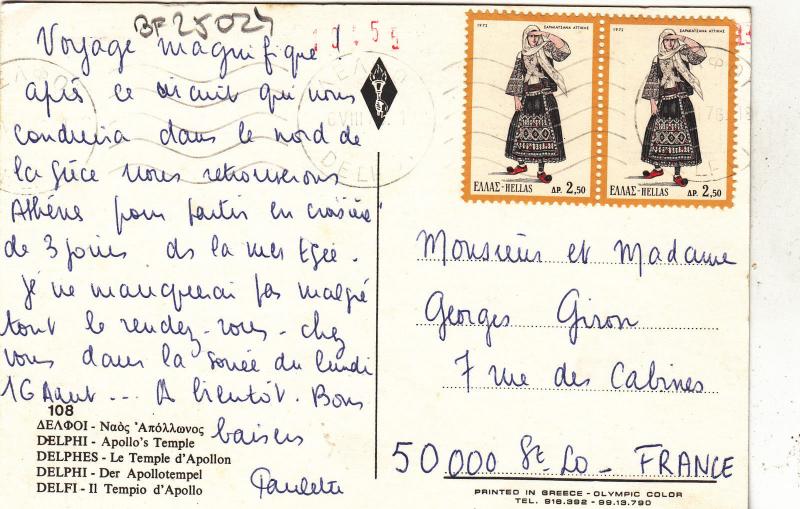 BF25024
Voyage magnifique !
après ce circuit qui nous
conduira dans le nord de
la Grèce nous retrouverons
Athènes pour partir en croisière
de 3 jours ds la mer Egée.
Je ne manquerai pas malgré
tout le rendez-vous - chez
vous dans la soirée du lundi
16 Aout ... A bientôt. Bons
baisers
Paulette
108
ΔΕΛΦΟΙ - Ναὸς Ἀπόλλωνος
DELPHI - Apollo's Temple
DELPHES - Le Temple d'Apollon
DELPHI - Der Apollotempel
DELFI - Il Tempio d'Apollo
1972 ΣΑΡΑΚΑΤΣΑΝΑ ΑΤΤΙΚΗΣ
ΕΛΛΑΣ-HELLAS ΔΡ. 2,50
1972 ΣΑΡΑΚΑΤΣΑΝΑ ΑΤΤΙΚΗΣ
ΕΛΛΑΣ-HELLAS ΔΡ. 2,50
Monsieur et Madame
Georges Giron
7 rue des Cabines
50000 St-Lo - FRANCE
PRINTED IN GREECE - OLYMPIC COLOR
TEL. 916.392 - 99.13.790